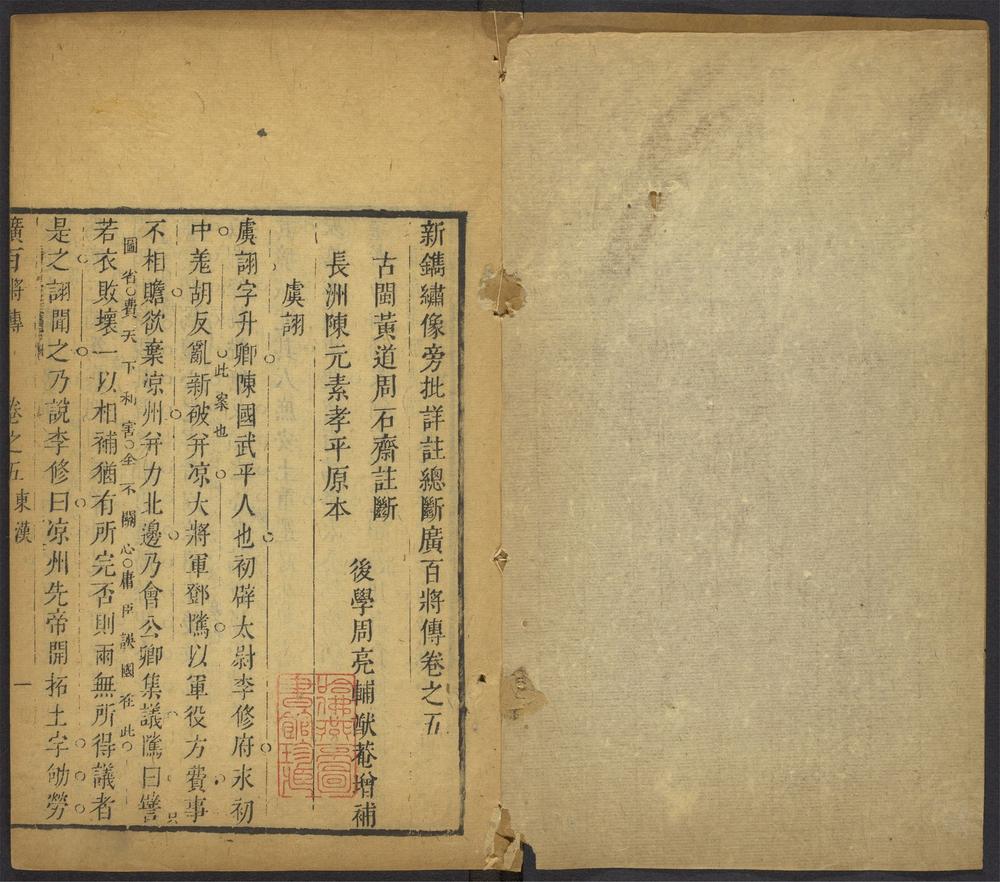 新鐫繡像旁批詳註總斷廣百將傳卷之五
古閩黃道周石齋註斷
後學周亮輔猷菴增補
長洲陳元素孝平原本
虞詡
虞詡字升卿陳國武平人也初辟太尉李修府永初
中羌胡反亂新破并凉大將軍鄧騭以軍役方費事
此案也
不相贍欲棄凉州并力北邊乃會公卿集議騭曰譬
只
圖省費天下利害全不關心庸臣誤國在此
若衣敗壞一以相補猶有所完否則兩無所得議者
是之詡聞之乃說李修曰凉州先帝開拓土宇劬勞
廣百將傳 卷之五 東漢 一
哈佛燕京圖書館珍藏